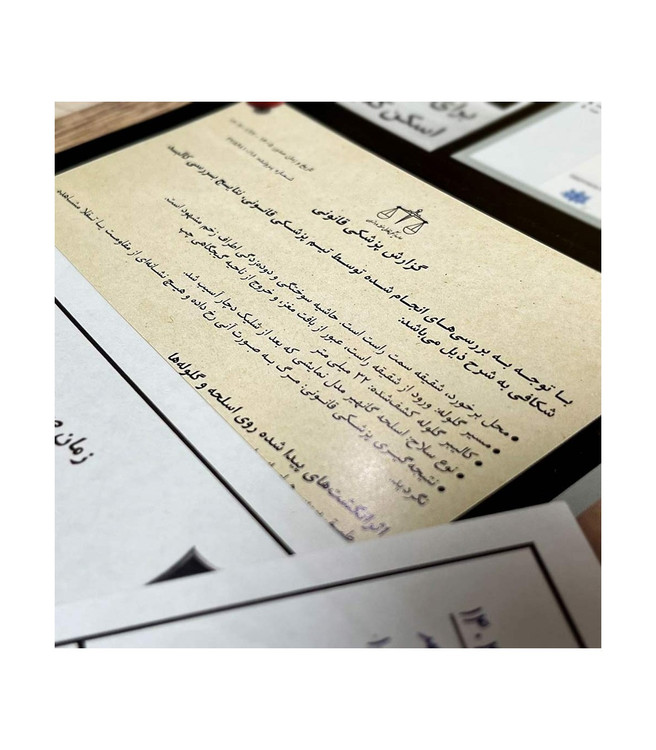 برای
اسکن ک
گزارش پزشکی قانونی
با توجه به بررسی‌های انجام شده توسط تیم پزشکی قانونی، نتایج بررسی کالبد
شکافی به شرح ذیل می‌باشد:
• محل برخورد، شقیقه سمت راست است. حاشیه سوختگی و دودزدگی اطراف زخم مشهود است.
• مسیر گلوله: ورود از شقیقه راست، عبور از بافت مغز، و خروج از ناحیه گیجگاهی چپ
• کالیبر گلوله کشف‌شده: ۳۲ میلی متر
• نوع سلاح: اسلحه کانهیر مدل نمایشی که بعد از شلیک دچار آسیب شد.
• نتیجه‌گیری پزشکی قانونی: مرگ به صورت آنی رخ داده و هیچ نشانه‌ای از مقاومت یا تقلا مشاهده
نگردید.
اثر انگشت‌های پیدا شده روی اسلحه و گلوله‌ها
زمان